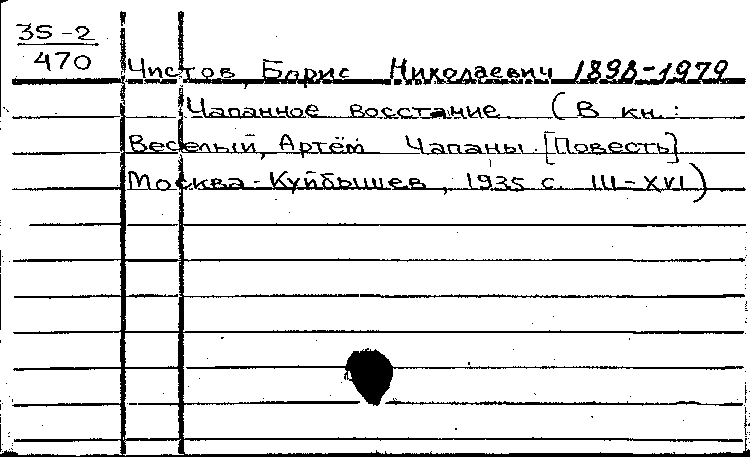 35-2
470
Чистов, Борис Николаевич 1898-1979
Чапанное восстание. (В кн.:
Веселый, Артём Чапаны. [Повесть]
Москва-Куйбышев, 1935 с. III-XVI)